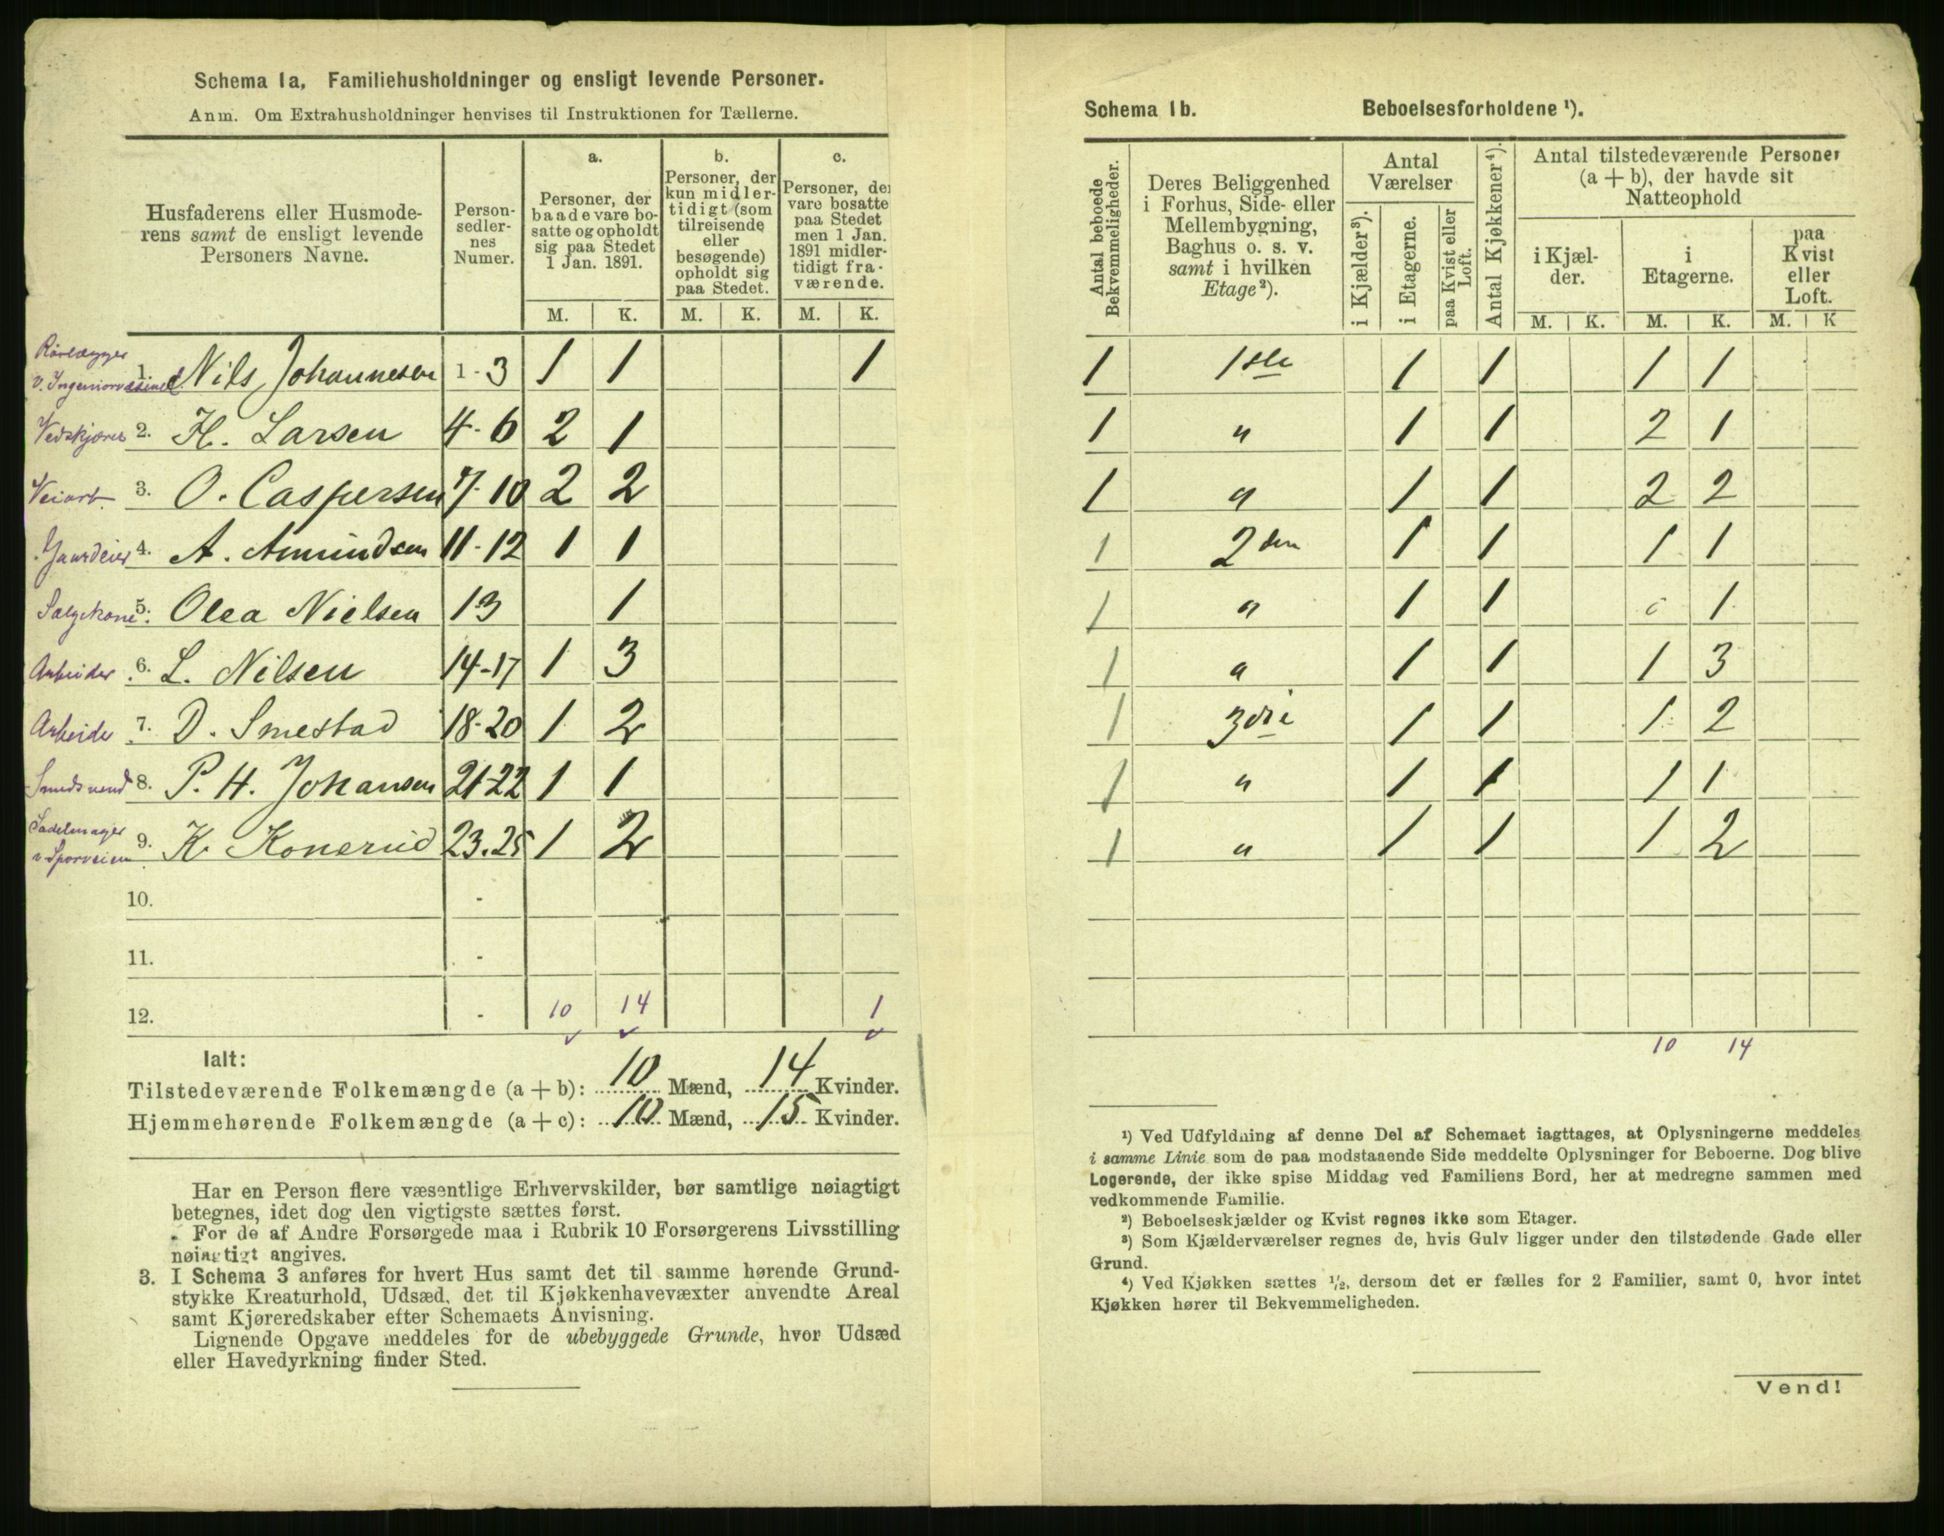 Schema 1a, Familiehusholdninger og ensligt levende Personer.
Anm. Om Extrahusholdninger henvises til Instruktionen for Tællerne.
Husfaderens eller Husmode-
rens samt de ensligt levende
Personers Navne.
Person-
sedler-
nes
Numer.
a.
Personer, der
baade vare bo-
satte og opholdt
sig paa Stedet
1 Jan. 1891.
b.
Personer, der
kun midler-
tidigt (som
tilreisende
eller
besøgende)
opholdt sig
paa Stedet.
c.
Personer, der
vare bosatte
paa Stedet
men 1 Jan.
1891 midler-
tidigt fra-
værende.
M. K. M. K. M. K.
Rørlægger
v. Ingeniørvæsenet 1. Nils Johannesen 1-3 1 1 1
Vedskjærer 2. H. Larsen 4-6 2 1
Veiarb. 3. O. Caspersen 7-10 2 2
Gaardeier 4. A. Amundsen 11-12 1 1
Sælgekone 5. Olea Nielsen 13 1
Arbeider 6. L. Nilsen 14-17 1 3
Arbeide 7. D. Smestad 18-20 1 2
Smedsvend 8. P. H. Johansen 21-22 1 1
Sadelmager
v. Sporveien 9. K. Konerud 23-25 1 2
10. -
11. -
12. - 10 14 1
Ialt:
Tilstedeværende Folkemængde (a + b): 10 Mænd, 14 Kvinder.
Hjemmehørende Folkemængde (a + c): 10 Mænd, 15 Kvinder.
Har en Person flere væsentlige Erhvervskilder, bør samtlige nøiagtigt
betegnes, idet dog den vigtigste sættes først.
For de af Andre Forsørgede maa i Rubrik 10 Forsørgerens Livsstilling
nøiagtigt angives.
3. I Schema 3 anføres for hvert Hus samt det til samme hørende Grund-
stykke Kreaturhold, Udsæd, det til Kjøkkenhavevæxter anvendte Areal
samt Kjøreredskaber efter Schemaets Anvisning.
Lignende Opgave meddeles for de ubebyggede Grunde, hvor Udsæd
eller Havedyrkning finder Sted.
Schema 1b. Beboelsesforholdene ¹).
Antal beboede
Bekvemmeligheder.
Deres Beliggenhed
i Forhus, Side- eller
Mellembygning,
Baghus o. s. v.
samt i hvilken
Etage²).
Antal
Værelser
i Kjælder³).
i Etagerne.
paa Kvist eller
Loft.
Antal Kjøkkener⁴).
Antal tilstedeværende Personer
(a + b), der havde sit
Natteophold
i Kjæl-
der.
i
Etagerne.
paa
Kvist
eller
Loft.
M. K. M. K. M. K
1 1ste 1 1 1 1
1 " 1 1 2 1
1 " 1 1 2 2
1 2den 1 1 1 1
1 " 1 1 0 1
1 " 1 1 1 3
1 3die 1 1 1 2
1 " 1 1 1 1
1 " 1 1 1 2
10 14
¹) Ved Udfyldning af denne Del af Schemaet iagttages, at Oplysningerne meddeles
i samme Linie som de paa modstaaende Side meddelte Oplysninger for Beboerne. Dog blive
Logerende, der ikke spise Middag ved Familiens Bord, her at medregne sammen med
vedkommende Familie.
²) Beboelseskjælder og Kvist regnes ikke som Etager.
³) Som Kjælderværelser regnes de, hvis Gulv ligger under den tilstødende Gade eller
Grund.
⁴) Ved Kjøkken sættes ½, dersom det er fælles for 2 Familier, samt 0, hvor intet
Kjøkken hører til Bekvemmeligheden.
Vend!